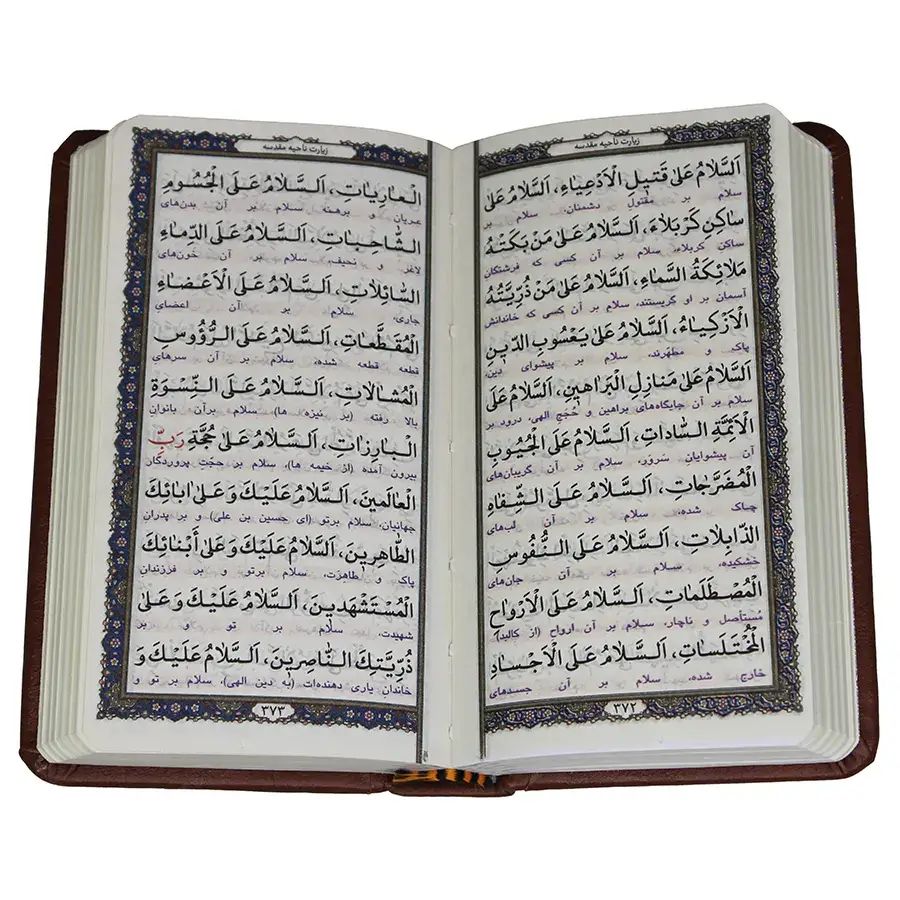 زیارت ناحیه مقدسه
اَلسَّلامُ عَلىٰ قَتيلِ الْاَدْعِياءِ، اَلسَّلامُ عَلىٰ
سلام بر مقتول دشمنان، سلام بر
ساكِنِ كَرْبَلاءَ، اَلسَّلامُ عَلىٰ مَنْ بَكَتْهُ
ساکن کربلاء، سلام بر آن کسی که فرشتگان
مَلائِكَةُ السَّماءِ، اَلسَّلامُ عَلىٰ مَنْ ذُرِّيَّتُهُ
آسمان بر او گریستند، سلام بر آن کسی که خاندانش
الْاَزْكِياءُ، اَلسَّلامُ عَلىٰ يَعْسُوبِ الدّينِ
پاک و مطهرند، سلام بر پیشوای دین،
اَلسَّلامُ عَلىٰ مَنازِلِ الْبَراهينِ، اَلسَّلامُ عَلَى
سلام بر آن جایگاه‌های براهین و حُجَج الهی، درود بر
الْاَئِمَّةِ السّاداتِ، اَلسَّلامُ عَلَى الْجُيُوبِ
آن پیشوایان سَروَر، سلام بر آن گریبان‌های
الْمُضَرَّجاتِ، اَلسَّلامُ عَلَى الشِّفاهِ
چاک شده، سلام بر آن لب‌های
الذّابِلاتِ، اَلسَّلامُ عَلَى النُّفُوسِ
خشکیده، سلام بر آن جان‌های
الْمُصْطَلَماتِ، اَلسَّلامُ عَلَى الْاَرْواحِ
مُستأصل و ناچار، سلام بر آن ارواح (از کالبد)
الْمُخْتَلَساتِ، اَلسَّلامُ عَلَى الْاَجْسادِ
خارج شده، سلام بر آن جسدهای
۳۷۲
زیارت ناحیه مقدسه
الْعارِياتِ، اَلسَّلامُ عَلَى الْجُسُومِ
عریان و برهنه، سلام بر آن بدن‌های
الشّاحِباتِ، اَلسَّلامُ عَلَى الدِّماءِ
لاغر و نحیف، سلام بر آن خون‌های
السّائِلاتِ، اَلسَّلامُ عَلَى الْاَعْضاءِ
جاری، سلام بر آن اعضای
الْمُقَطَّعاتِ، اَلسَّلامُ عَلَى الرُّؤُوسِ
قطعه قطعه شده، سلام بر آن سرهای
الْمُشالاتِ، اَلسَّلامُ عَلَى النِّسْوَةِ
بالا رفته (بر نیزه ها)، سلام برآن بانوان
الْبارِزاتِ، اَلسَّلامُ عَلىٰ حُجَّةِ رَبِّ
بیرون آمده (از خیمه ها)، سلام بر حجّت پروردگار
الْعالَمينَ، اَلسَّلامُ عَلَيْكَ وَ عَلىٰ ابائِكَ
جهانیان، سلام برتو (ای حسین بن علی) و بر پدران
الطّاهِرينَ، اَلسَّلامُ عَلَيْكَ وَ عَلىٰ اَبْنائِكَ
پاک و طاهرت، سلام برتو و بر فرزندان
الْمُسْتَشْهَدينَ، اَلسَّلامُ عَلَيْكَ وَ عَلىٰ
شهیدت، سلام بر تو و بر
ذُرِّيَّتِكَ النّاصِرينَ، اَلسَّلامُ عَلَيْكَ وَ
خاندان یاری دهنده‌ات (به دین الهی)، سلام بر تو و
۳۷۳